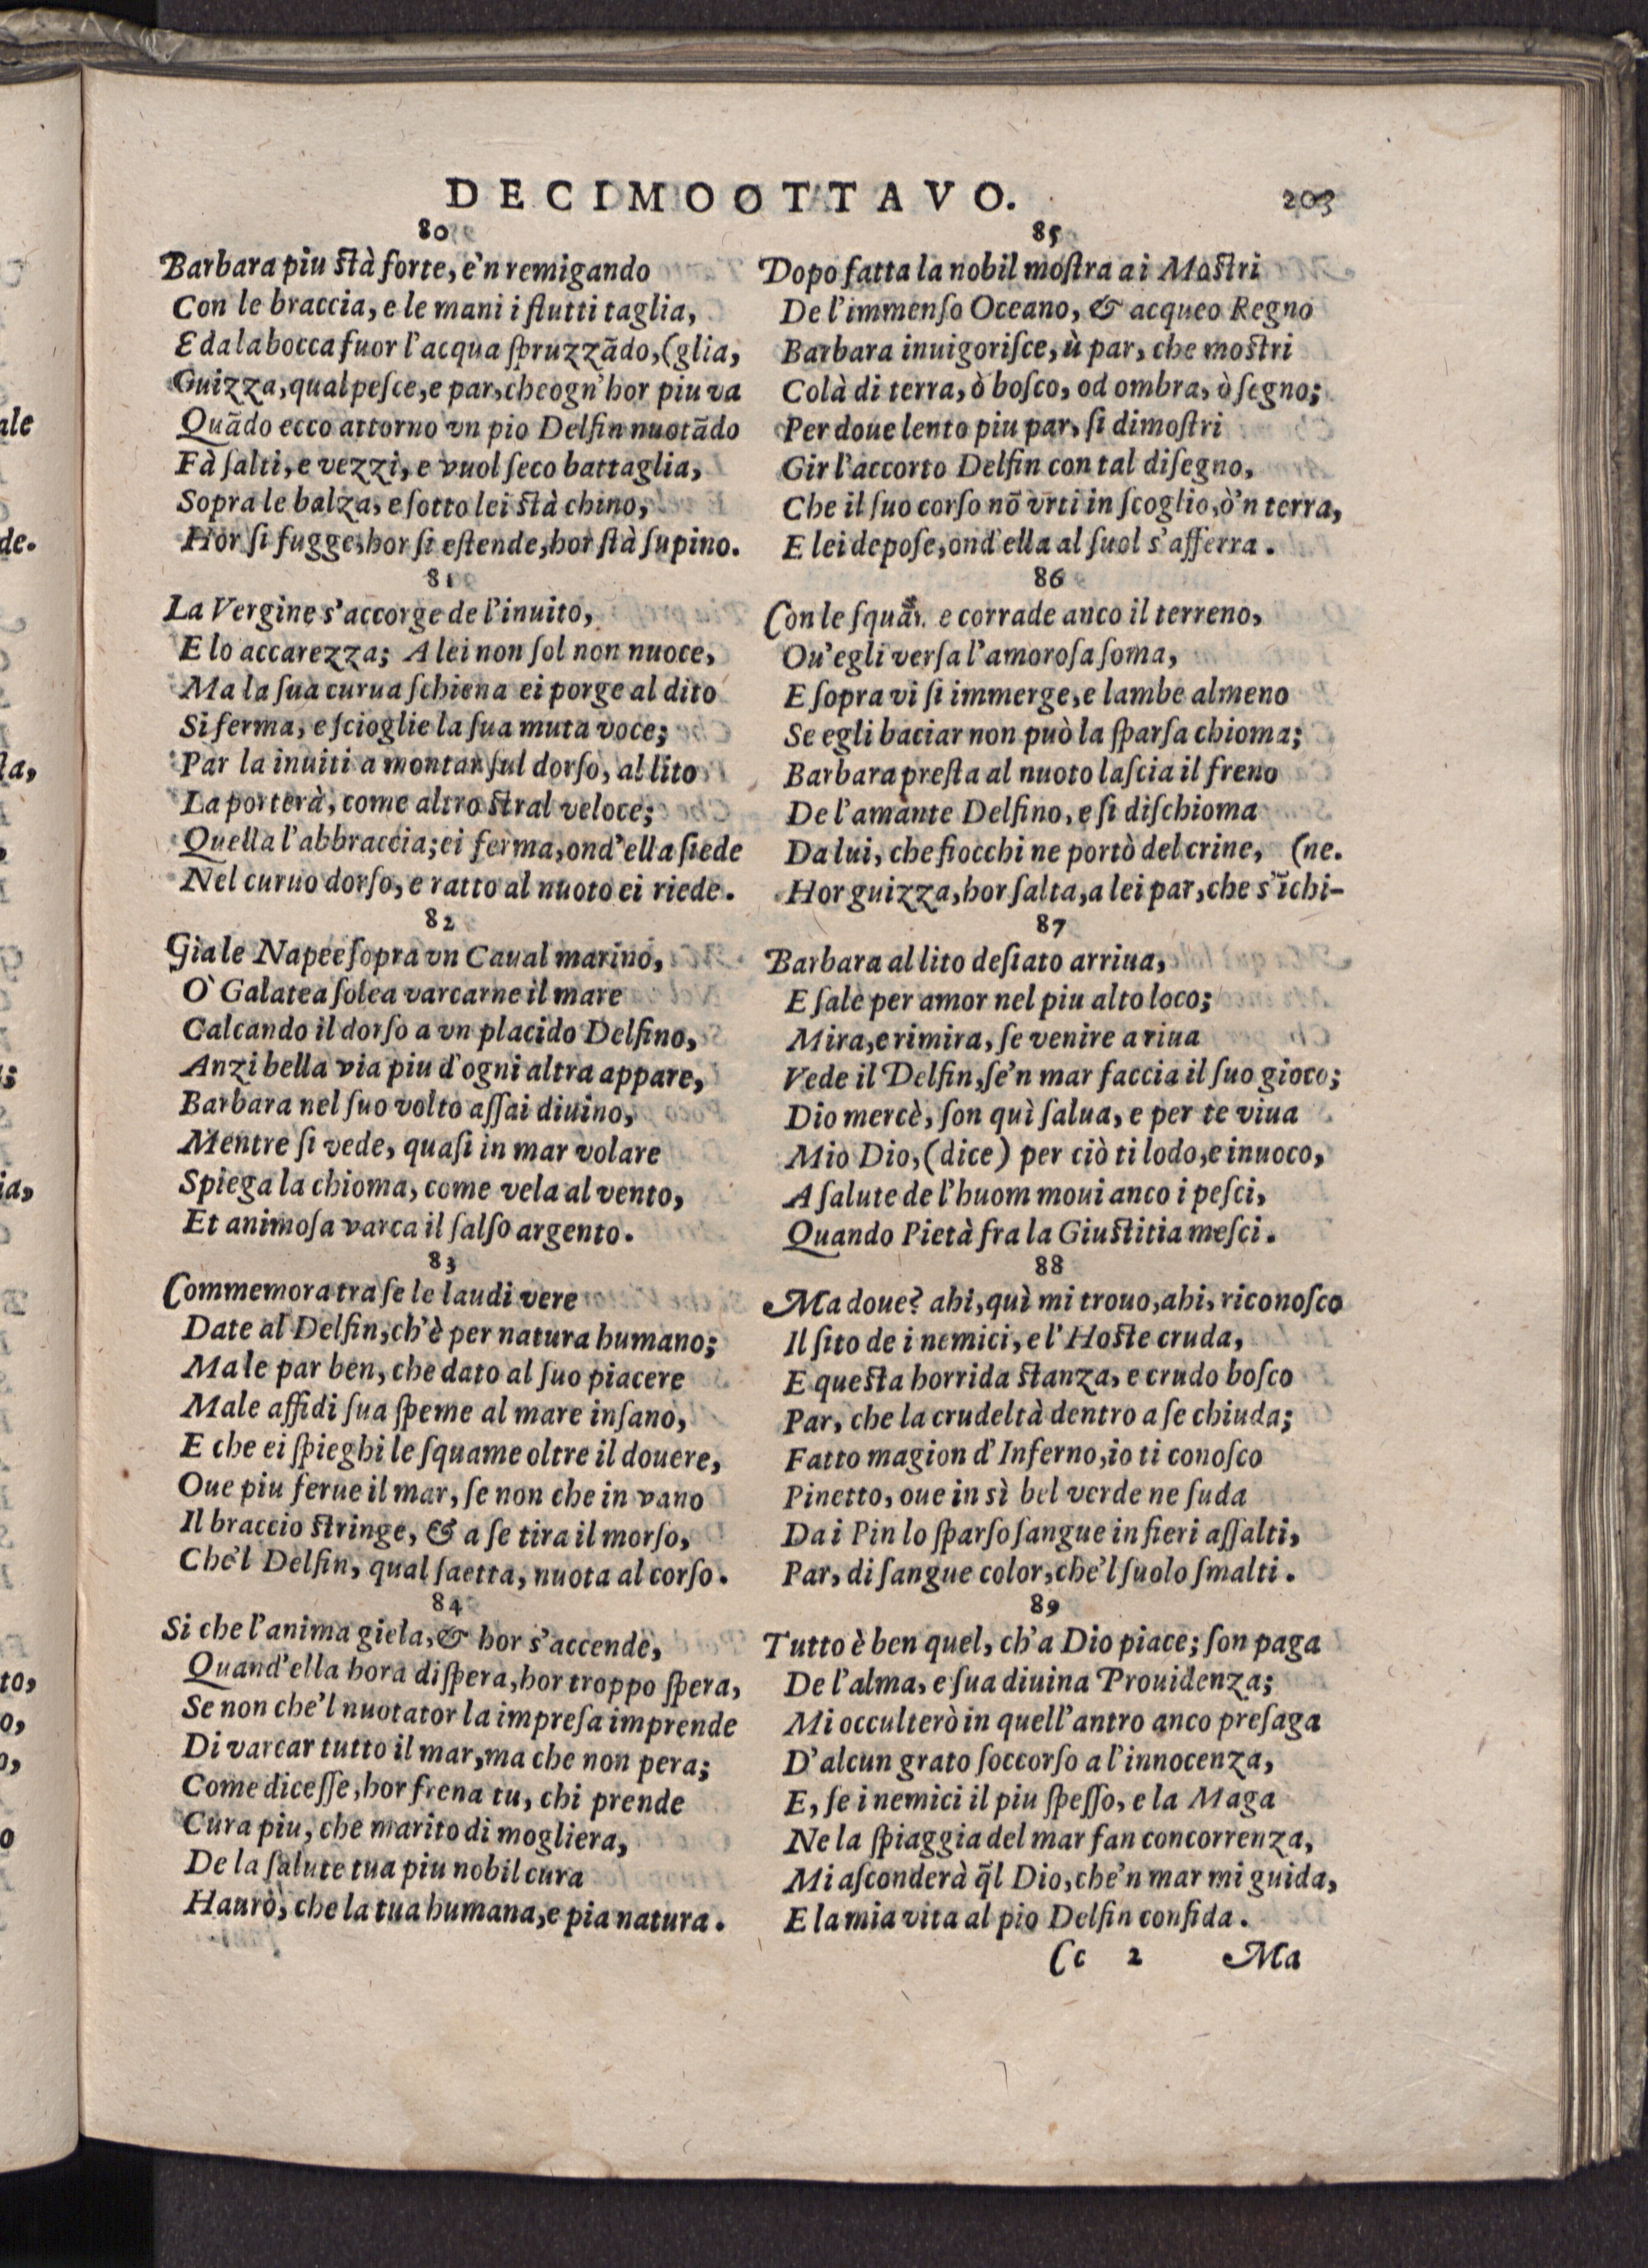 DECIMOOTTAVO. 203
80
Barbara piu ſtà forte, e'n remigando
Con le braccia, e le mani i flutti taglia,
E da la bocca fuor l'acqua ſpruzzãdo, (glia,
Guizza, qual peſce, e par, che ogn'hor piu va
Quãdo ecco attorno vn pio Delfin nuotãdo
Fà ſalti, e vezzi, e vuol ſeco battaglia,
Sopra le balza, e ſotto lei ſtà chino,
Hor ſi fugge, hor ſi eſtende, hor ſtà ſupino.
81
La Vergine s'accorge de l'inuito,
E lo accarezza; A lei non ſol non nuoce,
Ma la ſua curua ſchiena ei porge al dito
Si ferma, e ſcioglie la ſua muta voce;
Par la inuiti a montar ſul dorſo, al lito
La porterà, come altro ſtral veloce;
Quella l'abbraccia; ei ferma, ond'ella ſiede
Nel curuo dorſo, e ratto al nuoto ei riede.
82
Gia le Napee ſopra vn Caual marino,
Ò Galatea ſolea varcarne il mare
Calcando il dorſo a vn placido Delfino,
Anzi bella via piu d'ogni altra appare,
Barbara nel ſuo volto aſſai diuino,
Mentre ſi vede, quaſi in mar volare
Spiega la chioma, come vela al vento,
Et animoſa varca il ſalſo argento.
83
Commemora tra ſe le laudi vere
Date al Delfin, ch'è per natura humano;
Ma le par ben, che dato al ſuo piacere
Male affidi ſua ſpeme al mare inſano,
E che ei ſpieghi le ſquame oltre il douere,
Oue piu ferue il mar, ſe non che in vano
Il braccio ſtringe, & a ſe tira il morſo,
Che'l Delfin, qual ſaetta, nuota al corſo.
84
Si che l'anima giela, & hor s'accende,
Quand'ella hora diſpera, hor troppo ſpera,
Se non che'l nuotator la impreſa imprende
Di varcar tutto il mar, ma che non pera;
Come diceſſe, hor frena tu, chi prende
Cura piu, che marito di mogliera,
De la ſalute tua piu nobil cura
Haurò, che la tua humana, e pia natura.
85
Dopo fatta la nobil moſtra a i Moſtri
De l'immenſo Oceano, & acqueo Regno
Barbara inuigoriſce, ù par, che moſtri
Colà di terra, ò boſco, od ombra, ò ſegno;
Per doue lento piu par, ſi dimoſtri
Gir l'accorto Delfin con tal diſegno,
Che il ſuo corſo nõ vrti in ſcoglio, ò'n terra,
E lei depoſe, ond'ella al ſuol s'afferra.
86
Con le e corrade anco il terreno,
Ou'egli verſa l'amoroſa ſoma,
E ſopra vi ſi immerge, e lambe almeno
Se egli baciar non può la ſparſa chioma;
Barbara preſta al nuoto laſcia il freno
De l'amante Delfino, e ſi diſchioma
Da lui, che fiocchi ne portò del crine, (ne.
Hor guizza, hor ſalta, a lei par, che s'ĩchi-
87
Barbara al lito deſiato arriua,
E ſale per amor nel piu alto loco;
Mira, e rimira, ſe venire a riua
Vede il Delfin, ſe'n mar faccia il ſuo gioco;
Dio mercè, ſon quì ſalua, e per te viua
Mio Dio, (dice) per ciò ti lodo, e inuoco,
A ſalute de l'huom moui anco i peſci,
Quando Pietà fra la Giuſtitia meſci.
88
Ma doue? ahi, quì mi trouo, ahi, riconoſco
Il ſito de i nemici, e l'Hoſte cruda,
E queſta horrida ſtanza, e crudo boſco
Par, che la crudeltà dentro a ſe chiuda;
Fatto magion d'Inferno, io ti conoſco
Pinetto, oue in sì bel verde ne ſuda
Da i Pin lo ſparſo ſangue in fieri aſſalti,
Par, di ſangue color, che'l ſuolo ſmalti.
89
Tutto è ben quel, ch'a Dio piace; ſon paga
De l'alma, e ſua diuina Prouidenza;
Mi occulterò in quell'antro anco preſaga
D'alcun grato ſoccorſo a l'innocenza,
E, ſe i nemici il piu ſpeſſo, e la Maga
Ne la ſpiaggia del mar fan concorrenza,
Mi aſconderà q̃l Dio, che'n mar mi guida,
E la mia vita al pio Delfin confida.
Cc 2 Ma